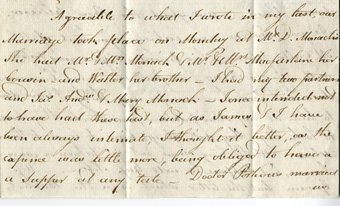 Agreeable to what I wrote in my last our
Marriage took place on Monday at Mr. D. Monach's
She had Mr. & Mrs. Monach & Mr. Macfarlane her
cousin — and Walter her brother — I had my two partners
and Jas. Andw. & Mary Monach — I once intended not
to have had these last, but as James & I have
been always intimate I thought it better, as the
expence was little more, being obliged to have a
a supper at any rate — Doctor married
us